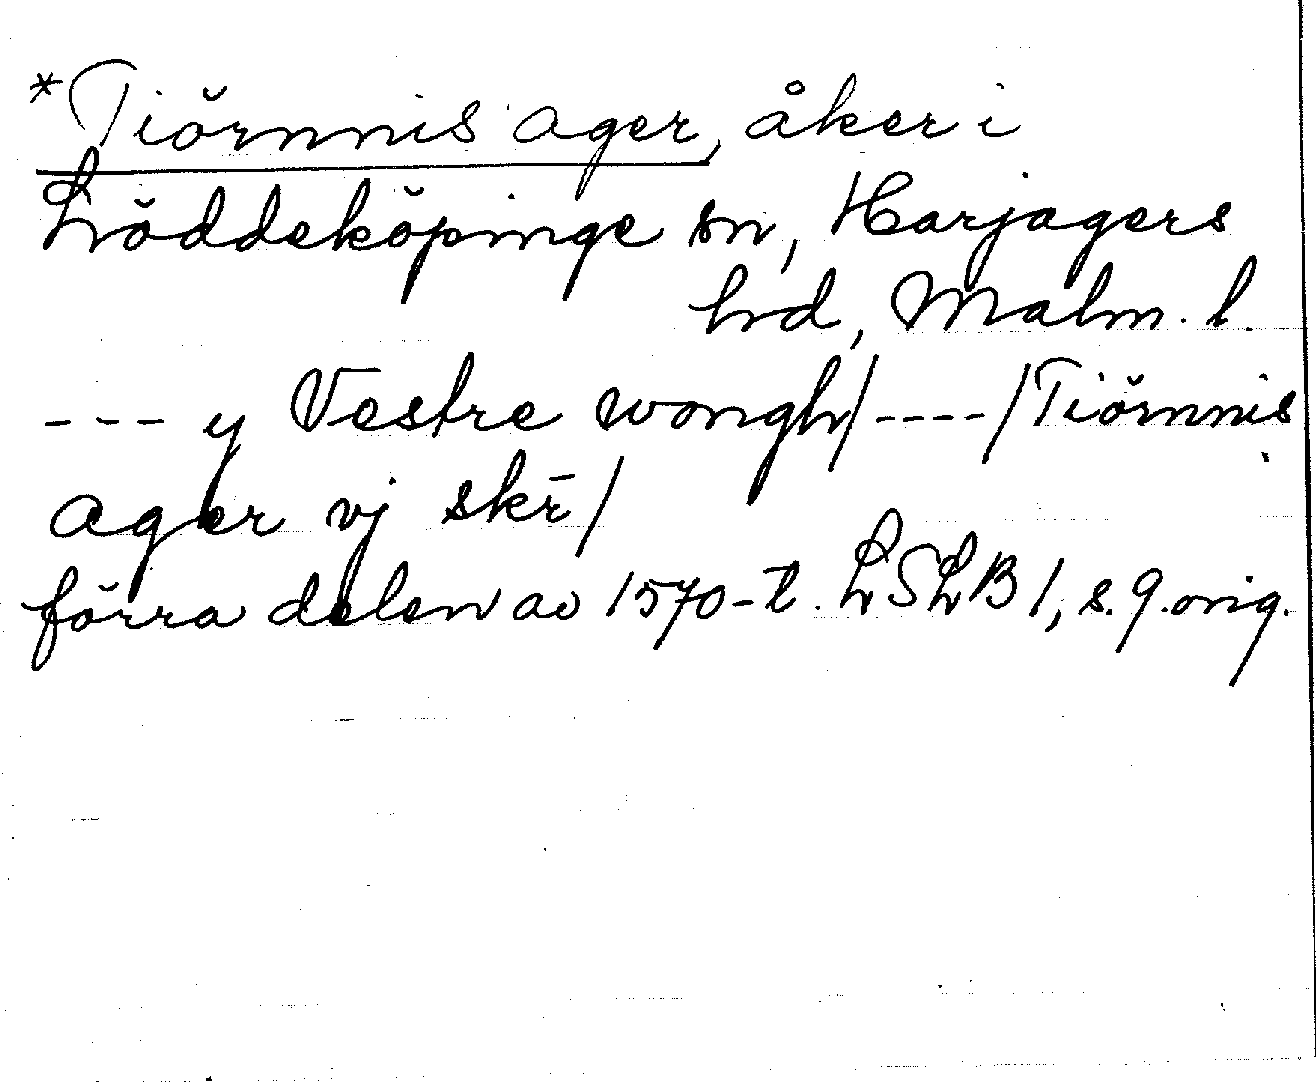 *Tiörnnis ager, åker i
Löddeköpinge sn, Harjagers
hd, Malm. l.
--- y Vestre wongh/----/Tiörnnis
ager vj skr̄/
förra delen av 1570-t. LSLB 1, s. 9. orig.